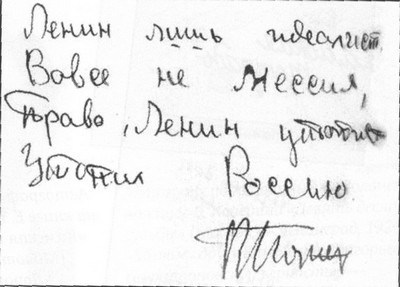 Ленин лишь идеалист
Вовсе не Мессия,
Право, Ленин утопист
Утопил Россию.